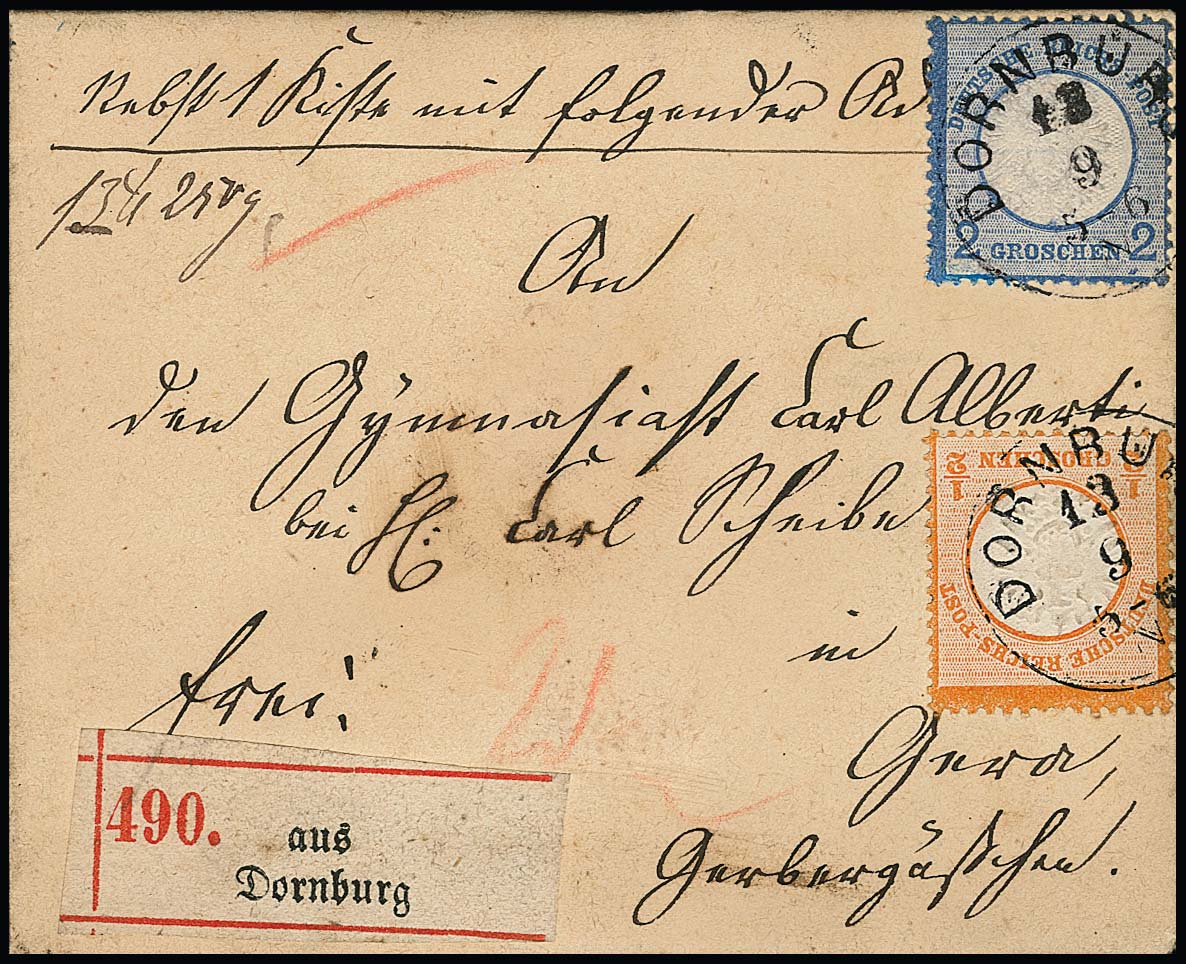 Nebst 1 Kiste mit folgender Ad
An
den Gymnasiast Carl Alberti
bei H. Carl Scheibe
in
frei!
Gera,
Gerbergäßchen.
490.
aus
Dornburg
DEUTSCHE REICHS-POST
2 GROSCHEN 2
DORNBUR
9
5-6 N
1/2 GROSCHEN 1/2
DEUTSCHE REICHS-POST
DORNBU
13
9
5-6 N